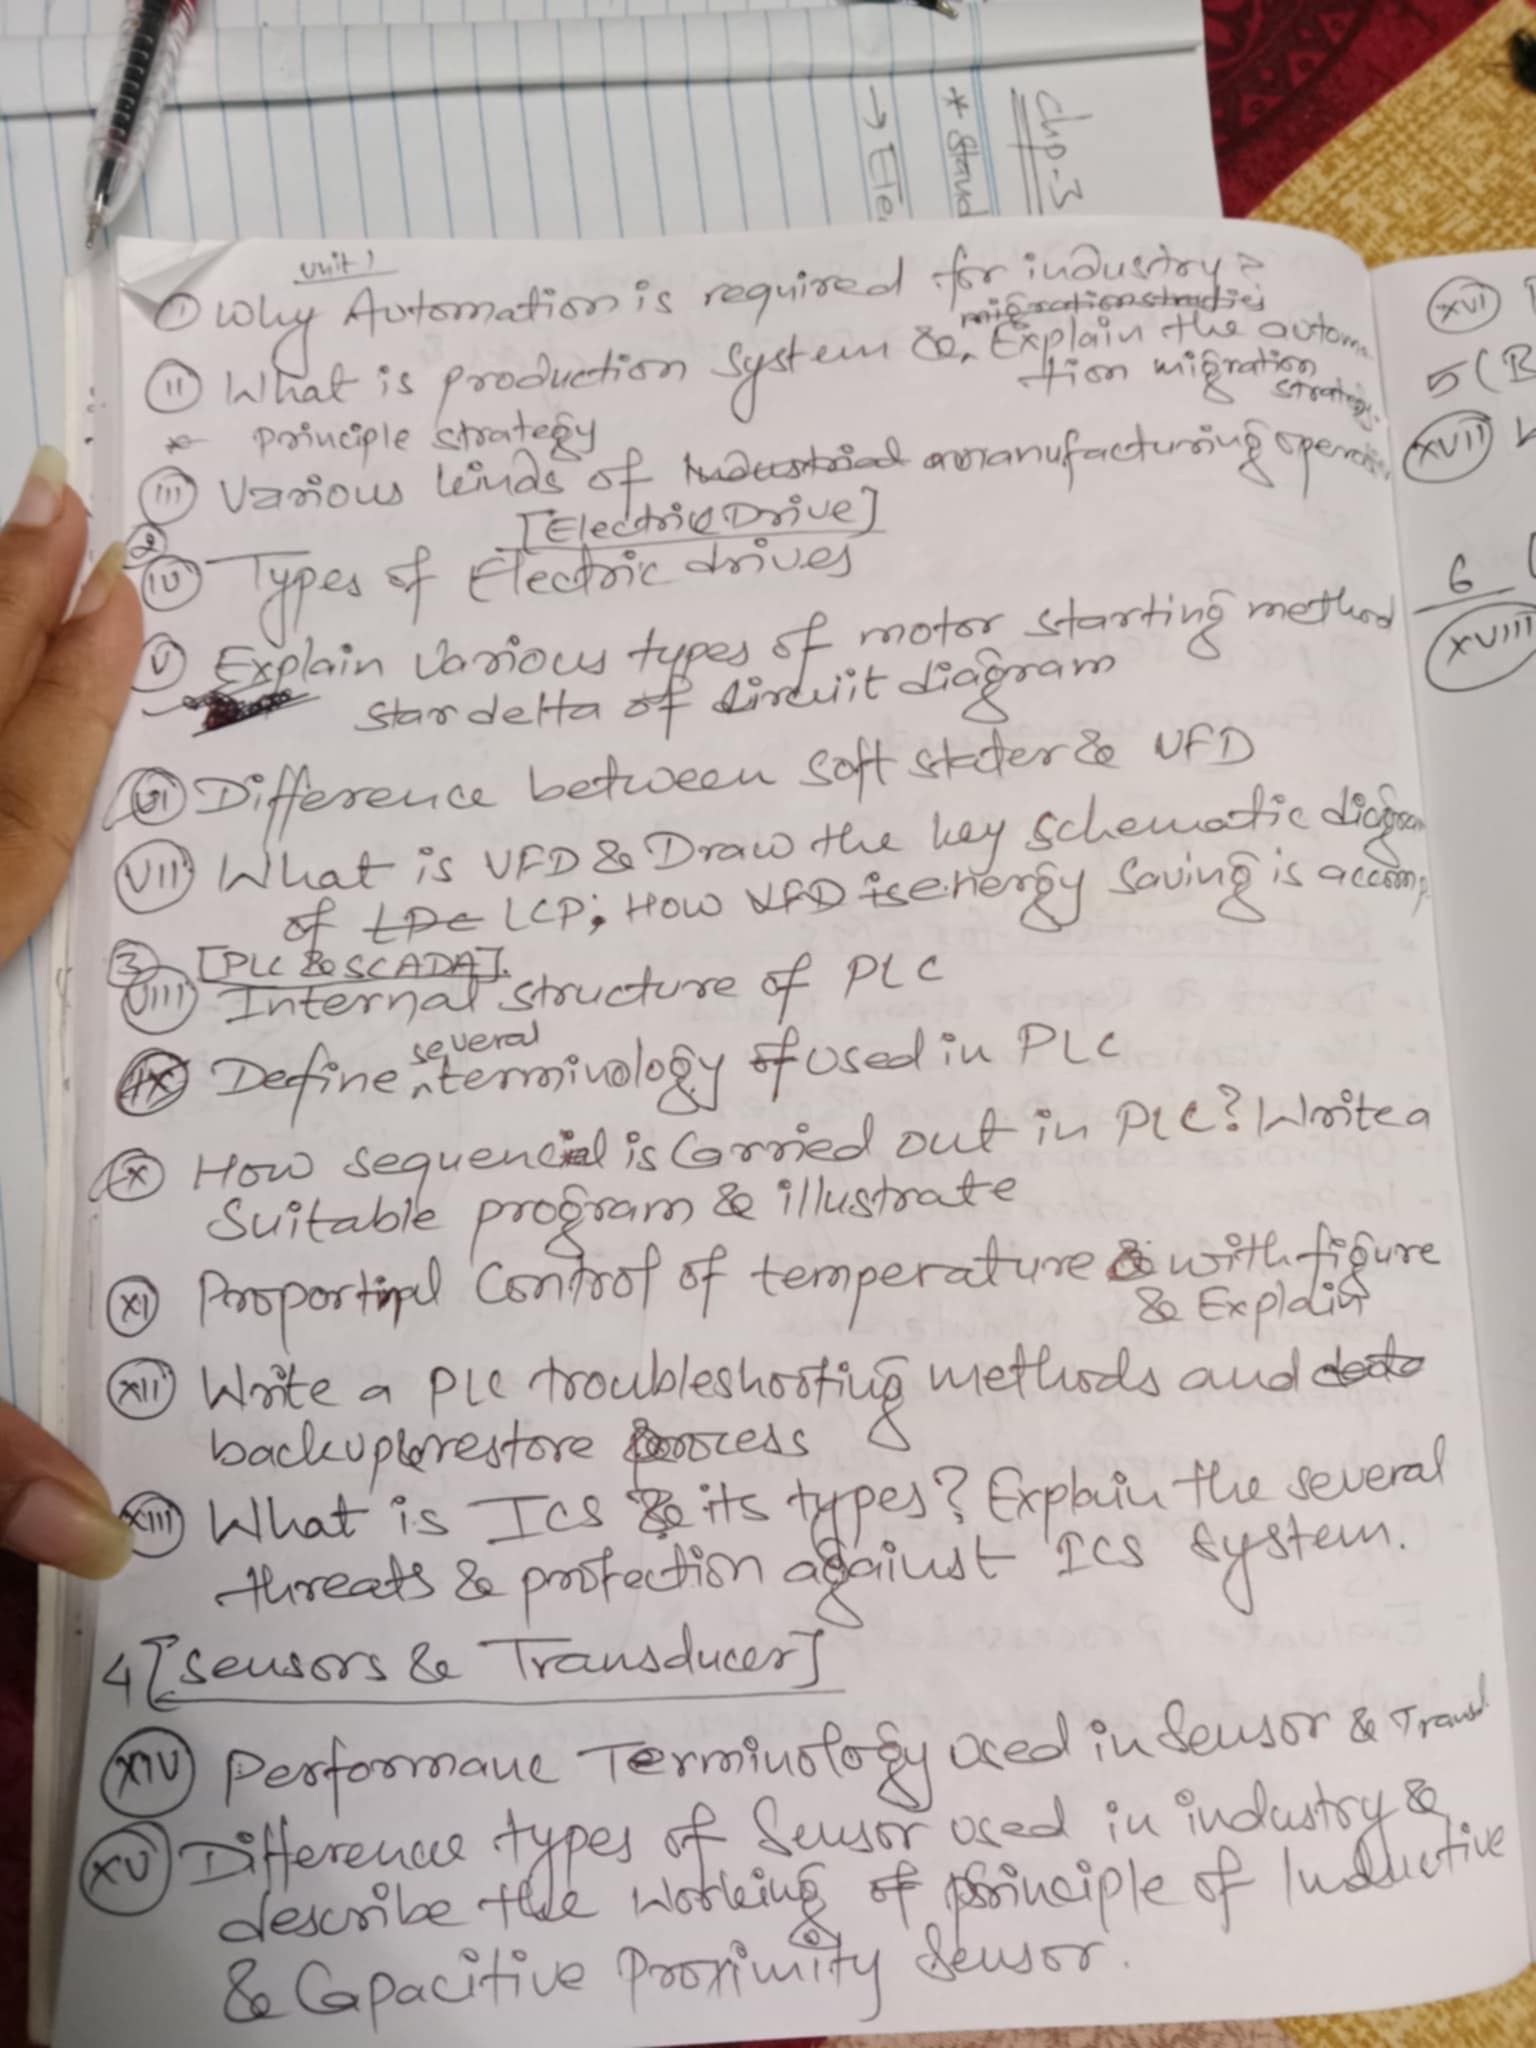 Chp-3
* Stand
→ Ele
Unit 1
① Why Automation is required for industry?
migration strategies
② What is production system & Explain the automa
tion migration
strategy.
* principle strategy
③ Various kinds of Industrial manufacturing operation
[Electric Drive]
②
④ Types of Electric drives
⑤ Explain various types of motor starting method
star delta of circuit diagram
⑥ Difference between soft stater & VFD
⑦ What is VFD & Draw the key schematic diagram
of LPC LCP; How VFD is energy saving is accomp
③ [PLC & SCADA].
VIII Internal structure of PLC
several
IX Define ^ terminology of used in PLC
X How sequencial is Carried out in PLC? Write a
Suitable program & illustrate
XI Proportinal Control of temperature & with figure
& Explain
XII Write a PLC troubleshooting methods and data
backup & restore process
XIII What is ICS & its types? Explain the several
threats & protection against ICS system.
4 [Sensors & Transducer]
XIV Performanc Terminology used in Sensor & Transd.
XV Difference types of Sensor used in industry &
describe the working of principle of Inductive
& Capacitive Proximity Sensor.
XVI
5 (B
XVII
6
XVIII